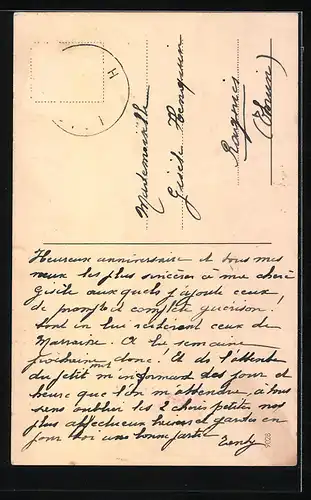 Mademoiselle
Gisèle
Ragnies
(Thuin)
Heureux anniversaire et tous mes
vœux les plus sincères à ma chère
Gisèle auxquels j'ajoute ceux
de prompte et complète guérison!
ceux de
Marraine. A la semaine
prochaine donc! Et de l'attente
du petit mot m'informant des jour et
heure que l'on m'attendra, à tous
sans oublier les 2 chéris petits nos
plus affectueux et gardes en
pour toi une bonne partie